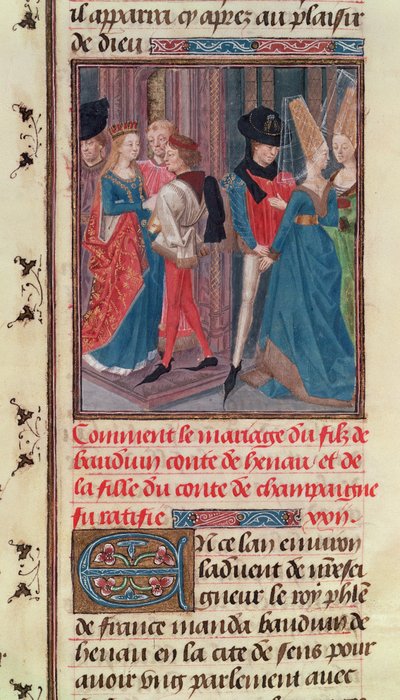 il apparra cy apres au plaisir
de dieu
Comment le mariage du filz de
bauduin conte de henau et de
la fille du conte de champaigne
fu ratifie xvii.
En ce lan environ
ladvent de nr̄e sei
gneur le roy phle
de france manda bauduin de
henau en la cite de sens pour
avoir ung parlement avec